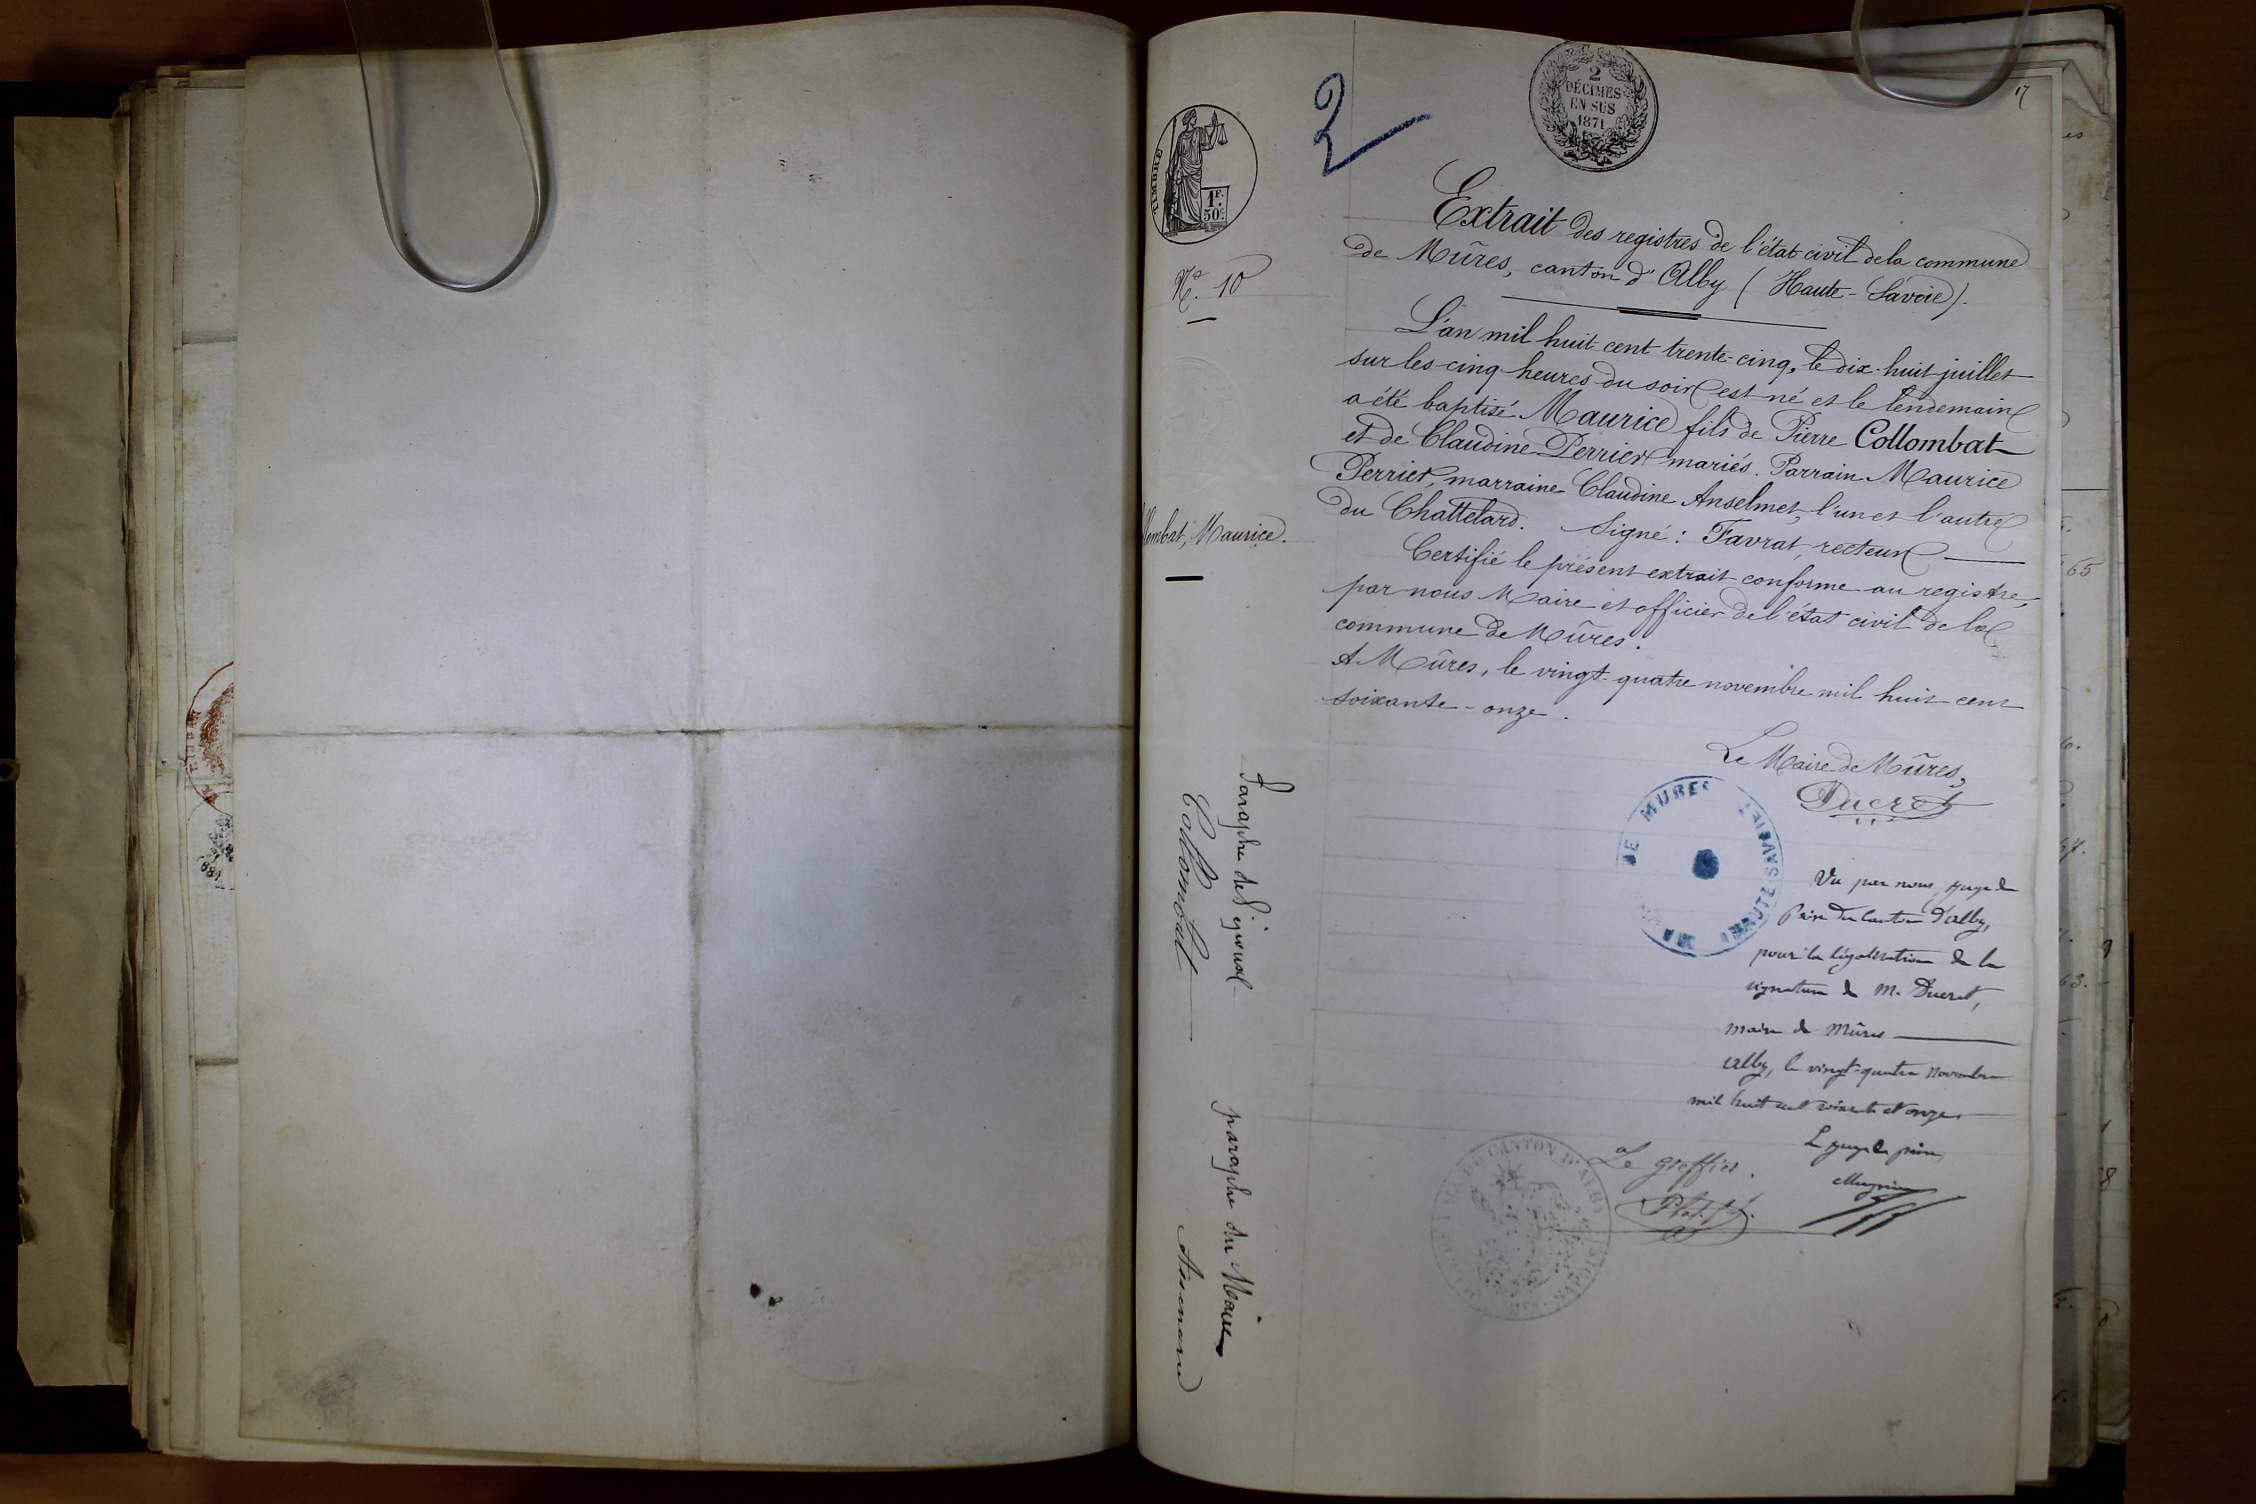 17
2
2
DÉCIMES
EN SUS
1871
TIMBRE
1F.
50c
Extrait des registres de l'état civil de la commune
de Mûres, canton d'Alby (Haute-Savoie).
No. 10
L'an mil huit cent trente-cinq, le dix-huit juillet
sur les cinq heures du soir est né et le lendemain
a été baptisé Maurice fils de Pierre Collombat
et de Claudine Perrier mariés. Parrain Maurice
Perrier, marraine Claudine Anselmet, l'un et l'autre
du Chattelard. Signé: Favrat, recteur
llombat, Maurice.
Certifié le présent extrait conforme au registre,
par nous Maire et officier de l'état civil de la
commune de Mûres.
A Mûres, le vingt-quatre novembre mil huit cent
soixante-onze.
Le Maire de Mûres,
Ducret
MURES
HAUTE SAVOIE
Vu par nous, juge de
paix du canton d'Alby,
pour la légalisation de la
signature de M. Ducret,
maire de Mûres
Alby, le vingt-quatre novembre
mil huit cent soixante et onze.
Le juge de paix,
Le greffier.
CANTON D'ALBY
Paraphe de l'époux
Collombat
paraphe du Maire